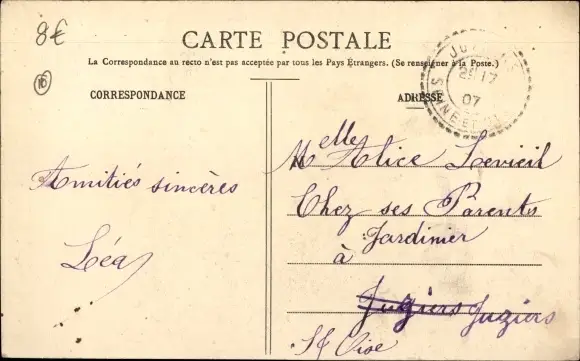 8€
CARTE POSTALE
La Correspondance au recto n'est pas acceptée par tous les Pays Etrangers. (Se renseigner à la Poste.)
16
CORRESPONDANCE
ADRESSE
17
07
Amitiés sincères
Léa
Melle Alice Levieil
Chez ses Parents
Jardinier
à
Jugiers Juziers
St Oise